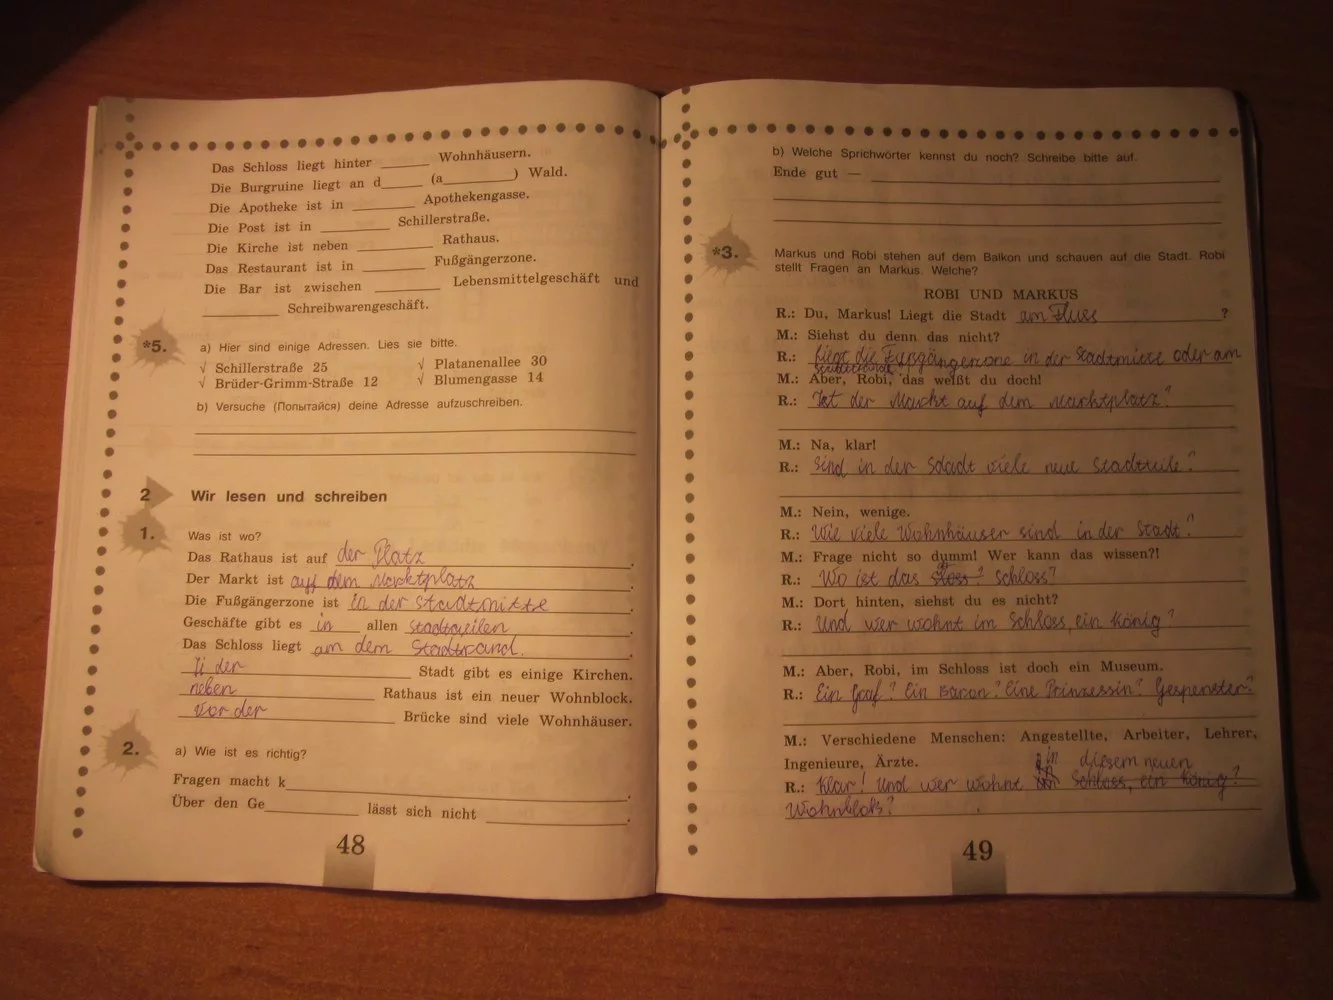 Das Schloss liegt hinter ______ Wohnhäusern.
Die Burgruine liegt an d_____ (a_________) Wald.
Die Apotheke ist in ________ Apothekengasse.
Die Post ist in _________ Schillerstraße.
Die Kirche ist neben ________ Rathaus.
Das Restaurant ist in ________ Fußgängerzone.
Die Bar ist zwischen ________ Lebensmittelgeschäft und
__________ Schreibwarengeschäft.
*5. a) Hier sind einige Adressen. Lies sie bitte.
√ Schillerstraße 25 √ Platanenallee 30
√ Brüder-Grimm-Straße 12 √ Blumengasse 14
b) Versuche (Попытайся) deine Adresse aufzuschreiben.
2 Wir lesen und schreiben
1. Was ist wo?
Das Rathaus ist auf der Platz.
Der Markt ist auf dem Marktplatz
Die Fußgängerzone ist in der Stadtmitte.
Geschäfte gibt es in allen Stadtteilen.
Das Schloss liegt am dem Stadtrand.
der Stadt gibt es einige Kirchen.
neben Rathaus ist ein neuer Wohnblock.
Vor der Brücke sind viele Wohnhäuser.
2. a) Wie ist es richtig?
Fragen macht k__________.
Über den Ge__________ lässt sich nicht __________.
48
b) Welche Sprichwörter kennst du noch? Schreibe bitte auf.
Ende gut — __________
*3. Markus und Robi stehen auf dem Balkon und schauen auf die Stadt. Robi
stellt Fragen an Markus. Welche?
ROBI UND MARKUS
R.: Du, Markus! Liegt die Stadt am Fluss?
M.: Siehst du denn das nicht?
R.: Liegt die Fußgängerzone in der Stadtmitte oder am
M.: Aber, Robi, das weißt du doch!
R.: Ist der Markt auf dem Marktplatz?
M.: Na, klar!
R.: Sind in der Stadt viele neue Stadtteile?
M.: Nein, wenige.
R.: Wie viele Wohnhäuser sind in der Stadt?
M.: Frage nicht so dumm! Wer kann das wissen?!
R.: Wo ist das Schloss?
M.: Dort hinten, siehst du es nicht?
R.: Und wer wohnt im Schloss, ein König?
M.: Aber, Robi, im Schloss ist doch ein Museum.
R.: Ein Graf? Ein Baron? Eine Prinzessin? Gespenster?
M.: Verschiedene Menschen: Angestellte, Arbeiter, Lehrer,
Ingenieure, Ärzte.
in diesem neuen
R.: Klar! Und wer wohnt Schloss, ein König?
Wohnblock?
49